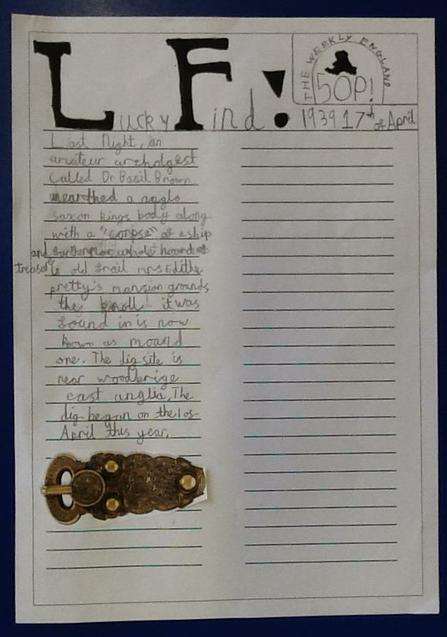 Lucky Find!
THE WEEKLY ENGLAND
50P!
1939 17th of April
Last Night, an
amateur archolgest
Called Dr Basil Brown
unearthed a agglo
saxon kings body along
with a "corpse" of a ship
and whole hoard of
treasure
old frail mrs Edithe
pretty's mansion grounds
the knoll it was
found in is now
known as moand
one. The dig site is
near woodbrige
east anglia. The
dig began on the 1os
April this year.